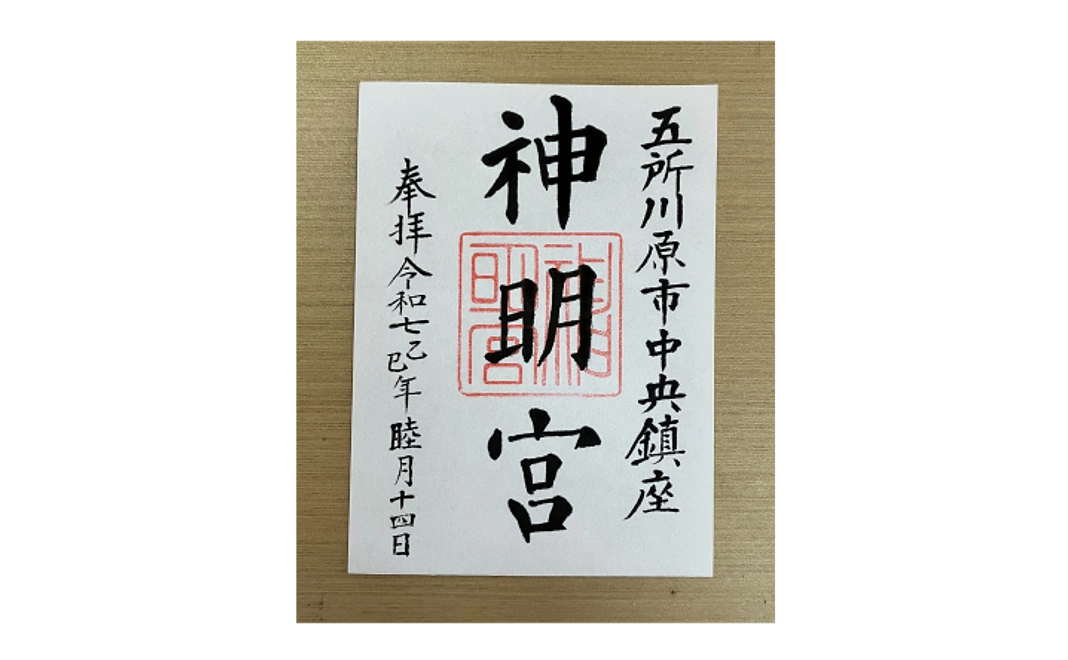 五所川原市中央鎮座
神明宮
奉拝令和七乙巳年睦月十四日
神明宮